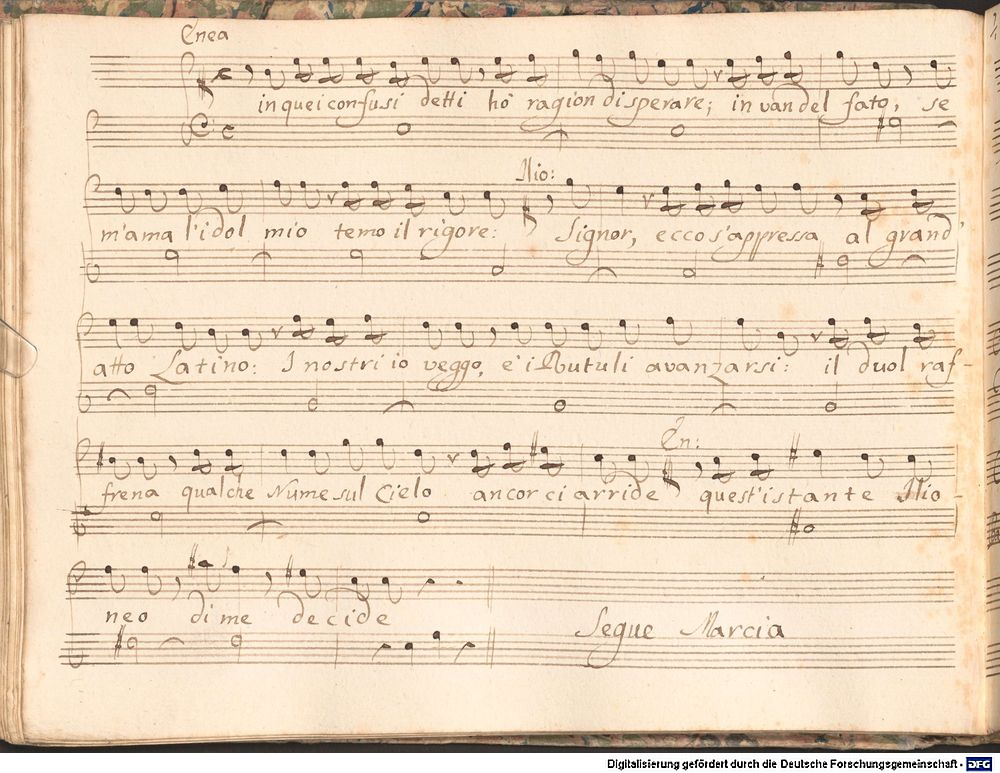 Enea
in quei confusi detti hò ragion disperare; in van del fato, se
Ilio:
m'ama l'idol mio temo il rigore: Signor, ecco s'appressa al grand'
atto Latino: I nostri io veggo, e i Rutuli avanzarsi: il duol raf-
En:
frena qualche Nume sul Cielo ancor ci arride quest'istante Ilio-
neo di me decide
Segue Marcia
Digitalisierung gefördert durch die Deutsche Forschungsgemeinschaft - DFG